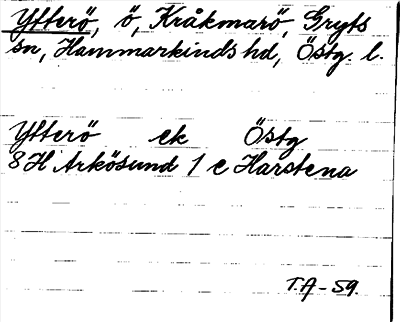 Ytterö, ö, Kråkmarö, Gryts
sn, Hammarkinds hd, Östg. l.
Ytterö ek Östg
8H Arkösund 1 c Harstena
T.A-59.